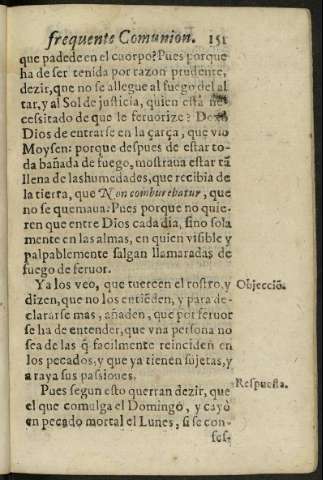 frequente Comunion. 151
que padede en el cuorpo? Pues porque
ha de ser tenida por razon prudente,
dezir, que no se allegue al fuego del al
tar, y al Sol de justicia, quien està ne
cessitado de que le feruorize? Dexò
Dios de entrarse en la çarça, que viò
Moysen: porque despues de estar to-
da bañada de fuego, mostraua estar tã
llena de las humedades, que recibia de
la tierra, que Non comburebatur, que
no se quemaua? Pues porque no quie-
ren que entre Dios cada dia, sino sola
mente en las almas, en quien visible y
palpablemente salgan llamaradas de
fuego de feruor.
Ya los veo, que tuercen el rostro, y
Objecciõ.
dizen, que no los entiẽden, y para de-
clararse mas, añaden, que por feruor
se ha de entender, que vna persona no
sea de las q̃ facilmente reinciden en
los pecados, y que ya tienen sujetas, y
a raya sus passiones.
Respuesta.
Pues segun esto querran dezir, que
el que comulga el Domingo, y cayò
en pecado mortal el Lunes, si se con-
fes-